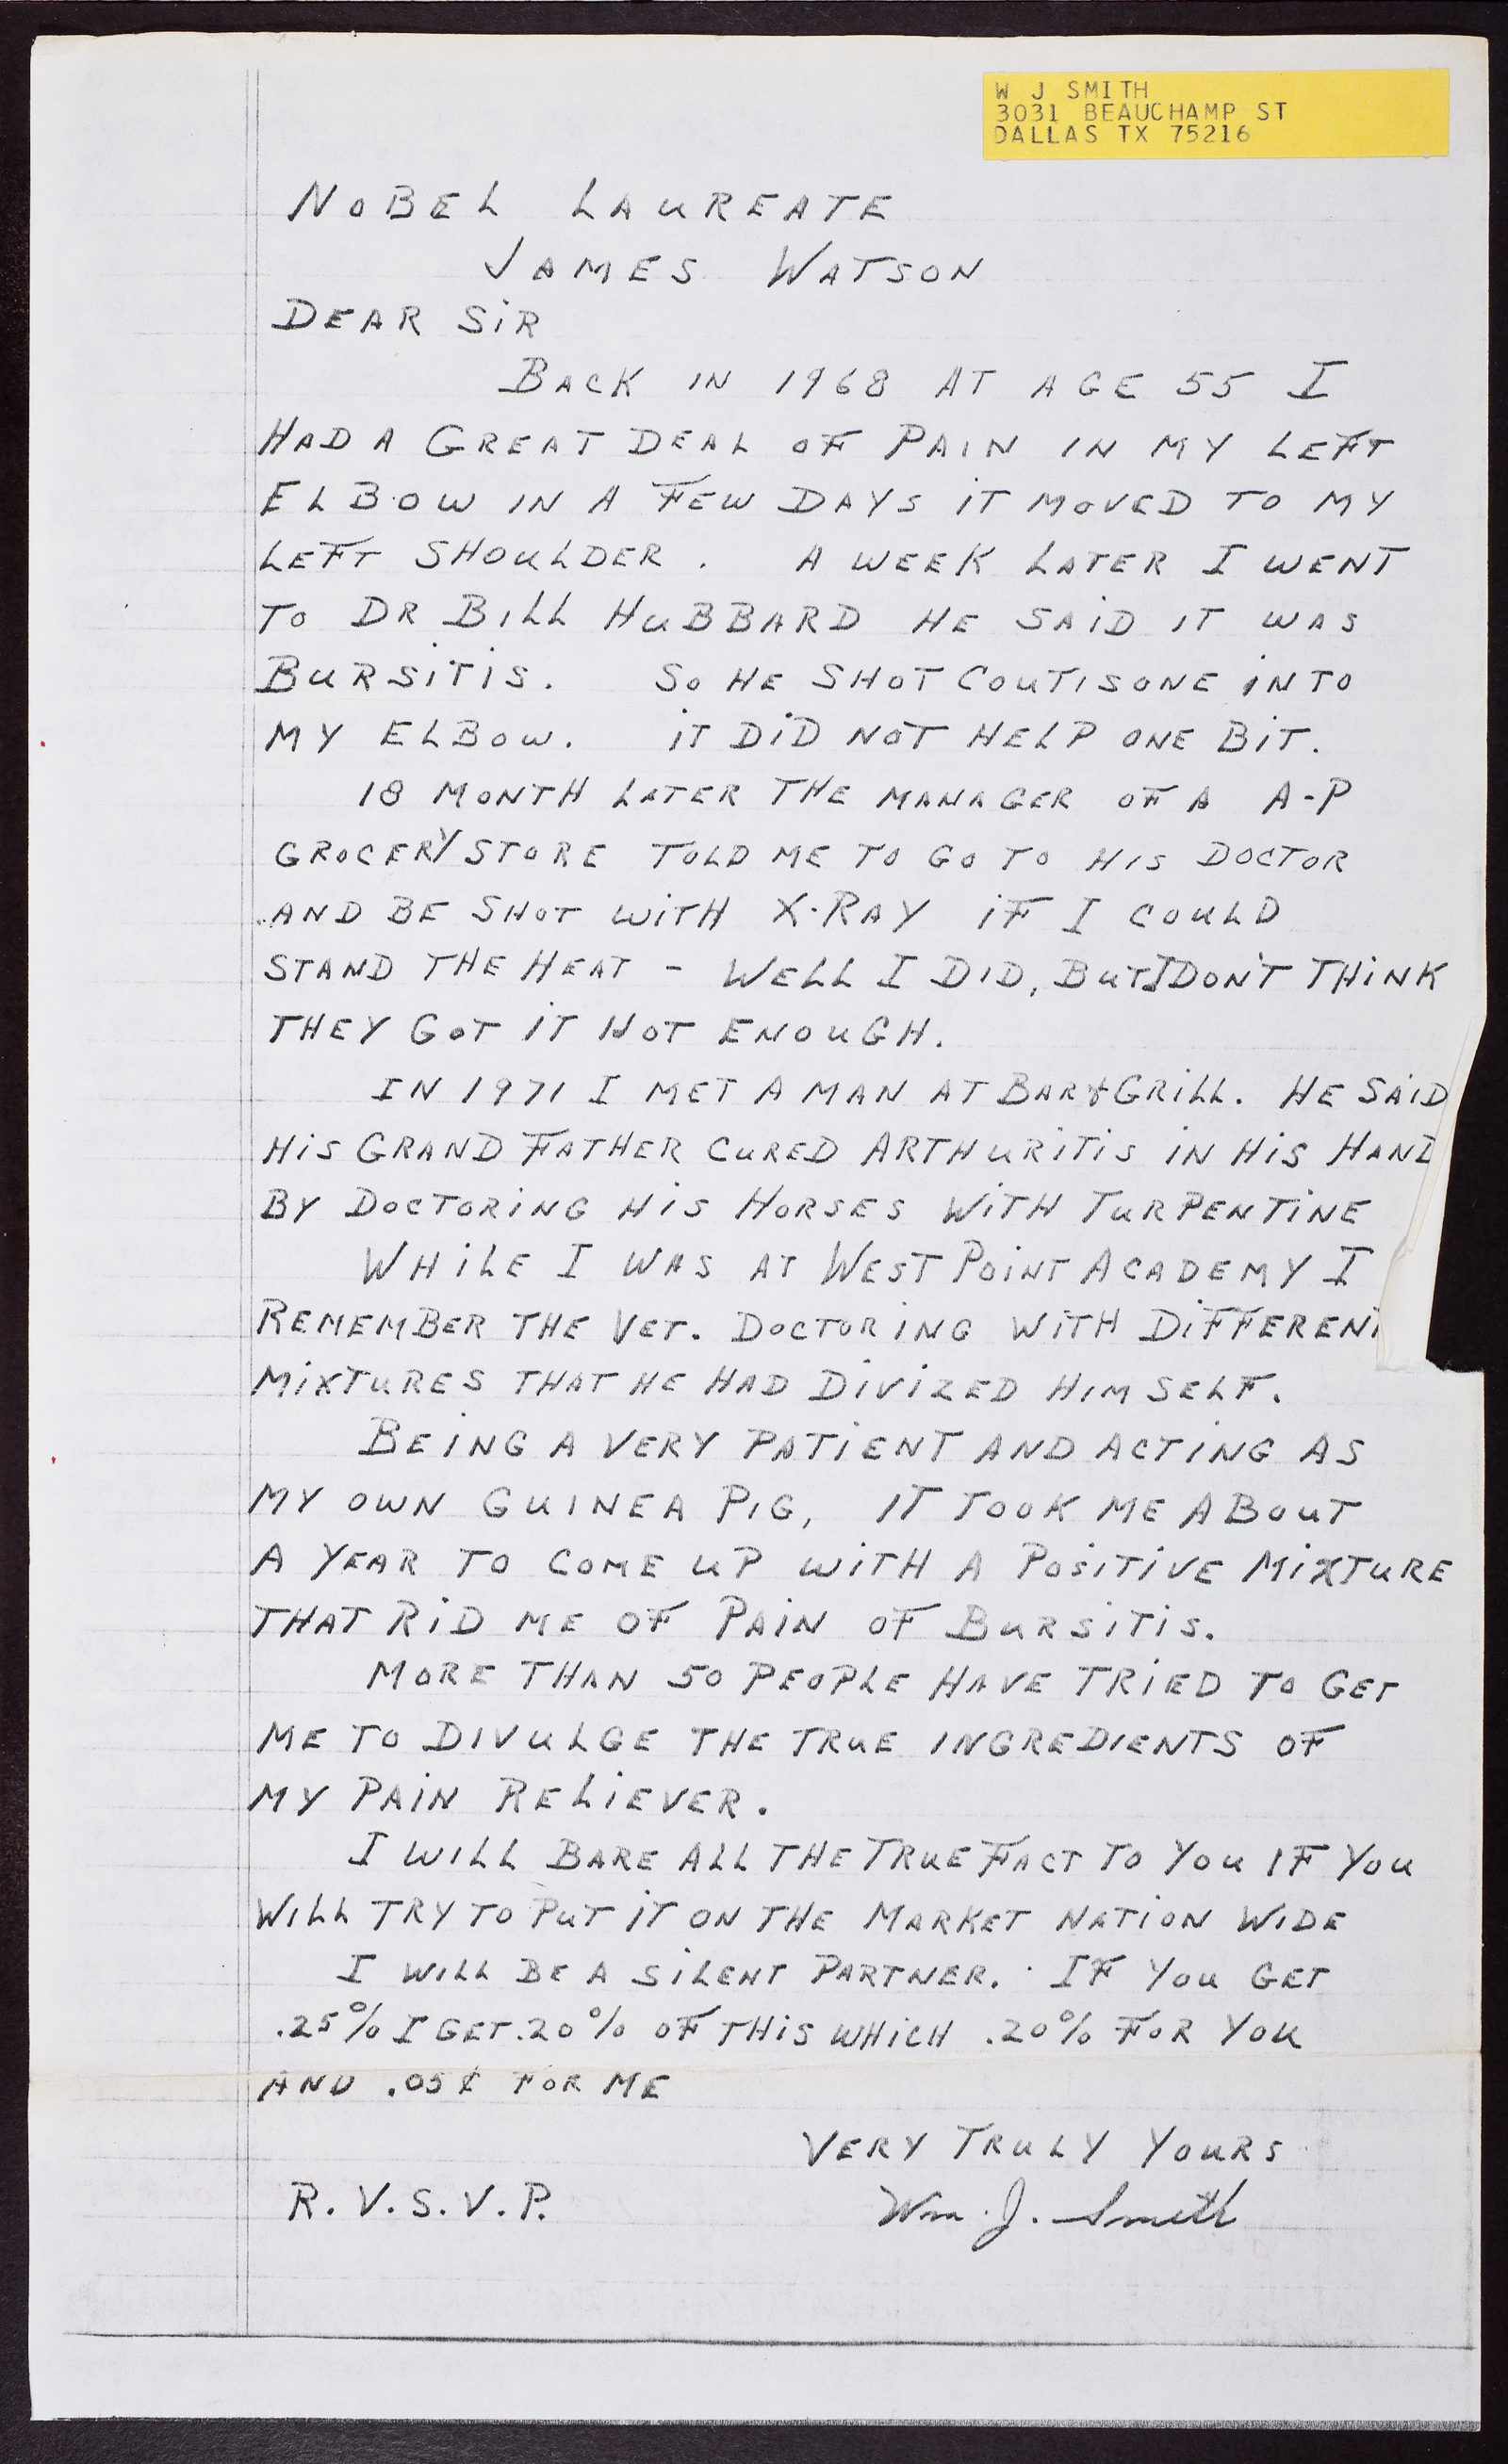 W J SMITH
3031 BEAUCHAMP ST
DALLAS TX 75216
NOBEL LAUREATE
JAMES WATSON
DEAR SIR
BACK IN 1968 AT AGE 55 I
HAD A GREAT DEAL OF PAIN IN MY LEFT
ELBOW IN A FEW DAYS IT MOVED TO MY
LEFT SHOULDER. A WEEK LATER I WENT
TO DR BILL HUBBARD HE SAID IT WAS
BURSITIS. SO HE SHOT COUTISONE INTO
MY ELBOW. IT DID NOT HELP ONE BIT.
18 MONTH LATER THE MANAGER OF A A-P
GROCERY STORE TOLD ME TO GO TO HIS DOCTOR
AND BE SHOT WITH X-RAY IF I COULD
STAND THE HEAT - WELL I DID, BUT I DON'T THINK
THEY GOT IT HOT ENOUGH.
IN 1971 I MET A MAN AT BAR & GRILL. HE SAID
HIS GRAND FATHER CURED ARTHURITIS IN HIS HAND
BY DOCTORING HIS HORSES WITH TURPENTINE
WHILE I WAS AT WEST POINT ACADEMY I
REMEMBER THE VET. DOCTORING WITH DIFFERENT
MIXTURES THAT HE HAD DIVIZED HIMSELF.
BEING A VERY PATIENT AND ACTING AS
MY OWN GUINEA PIG, IT TOOK ME ABOUT
A YEAR TO COME UP WITH A POSITIVE MIXTURE
THAT RID ME OF PAIN OF BURSITIS.
MORE THAN 50 PEOPLE HAVE TRIED TO GET
ME TO DIVULGE THE TRUE INGREDIENTS OF
MY PAIN RELIEVER.
I WILL BARE ALL THE TRUE FACT TO YOU IF YOU
WILL TRY TO PUT IT ON THE MARKET NATION WIDE
I WILL BE A SILENT PARTNER. IF YOU GET
.25% I GET .20% OF THIS WHICH .20% FOR YOU
AND .05¢ FOR ME
VERY TRULY YOURS
R.V.S.V.P. Wm. J. Smith